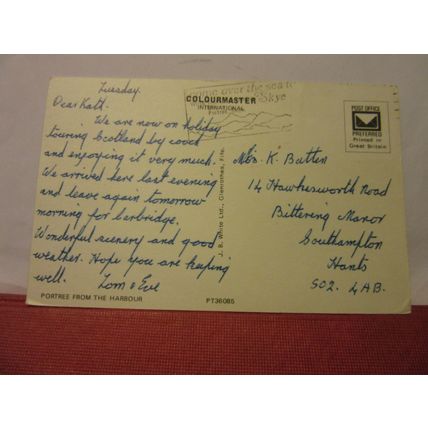 Tuesday.
Dear Kath.
We are now on holiday
touring Scotland by coach
and enjoying it very much.
We arrived here last evening
and leave again tomorrow
morning for
Wonderful scenery and good
weather. Hope you are keeping
well. Tom & Eve
PORTREE FROM THE HARBOUR
COLOURMASTER
INTERNATIONAL
Come over the sea to
Skye
J. B. White Ltd.,
PT36085
POST OFFICE
PREFERRED
Printed in
Great Britain
K. Batten
14 Hawkesworth Road
Bittering Manor
Southampton
Hants
SO2. 4AB.